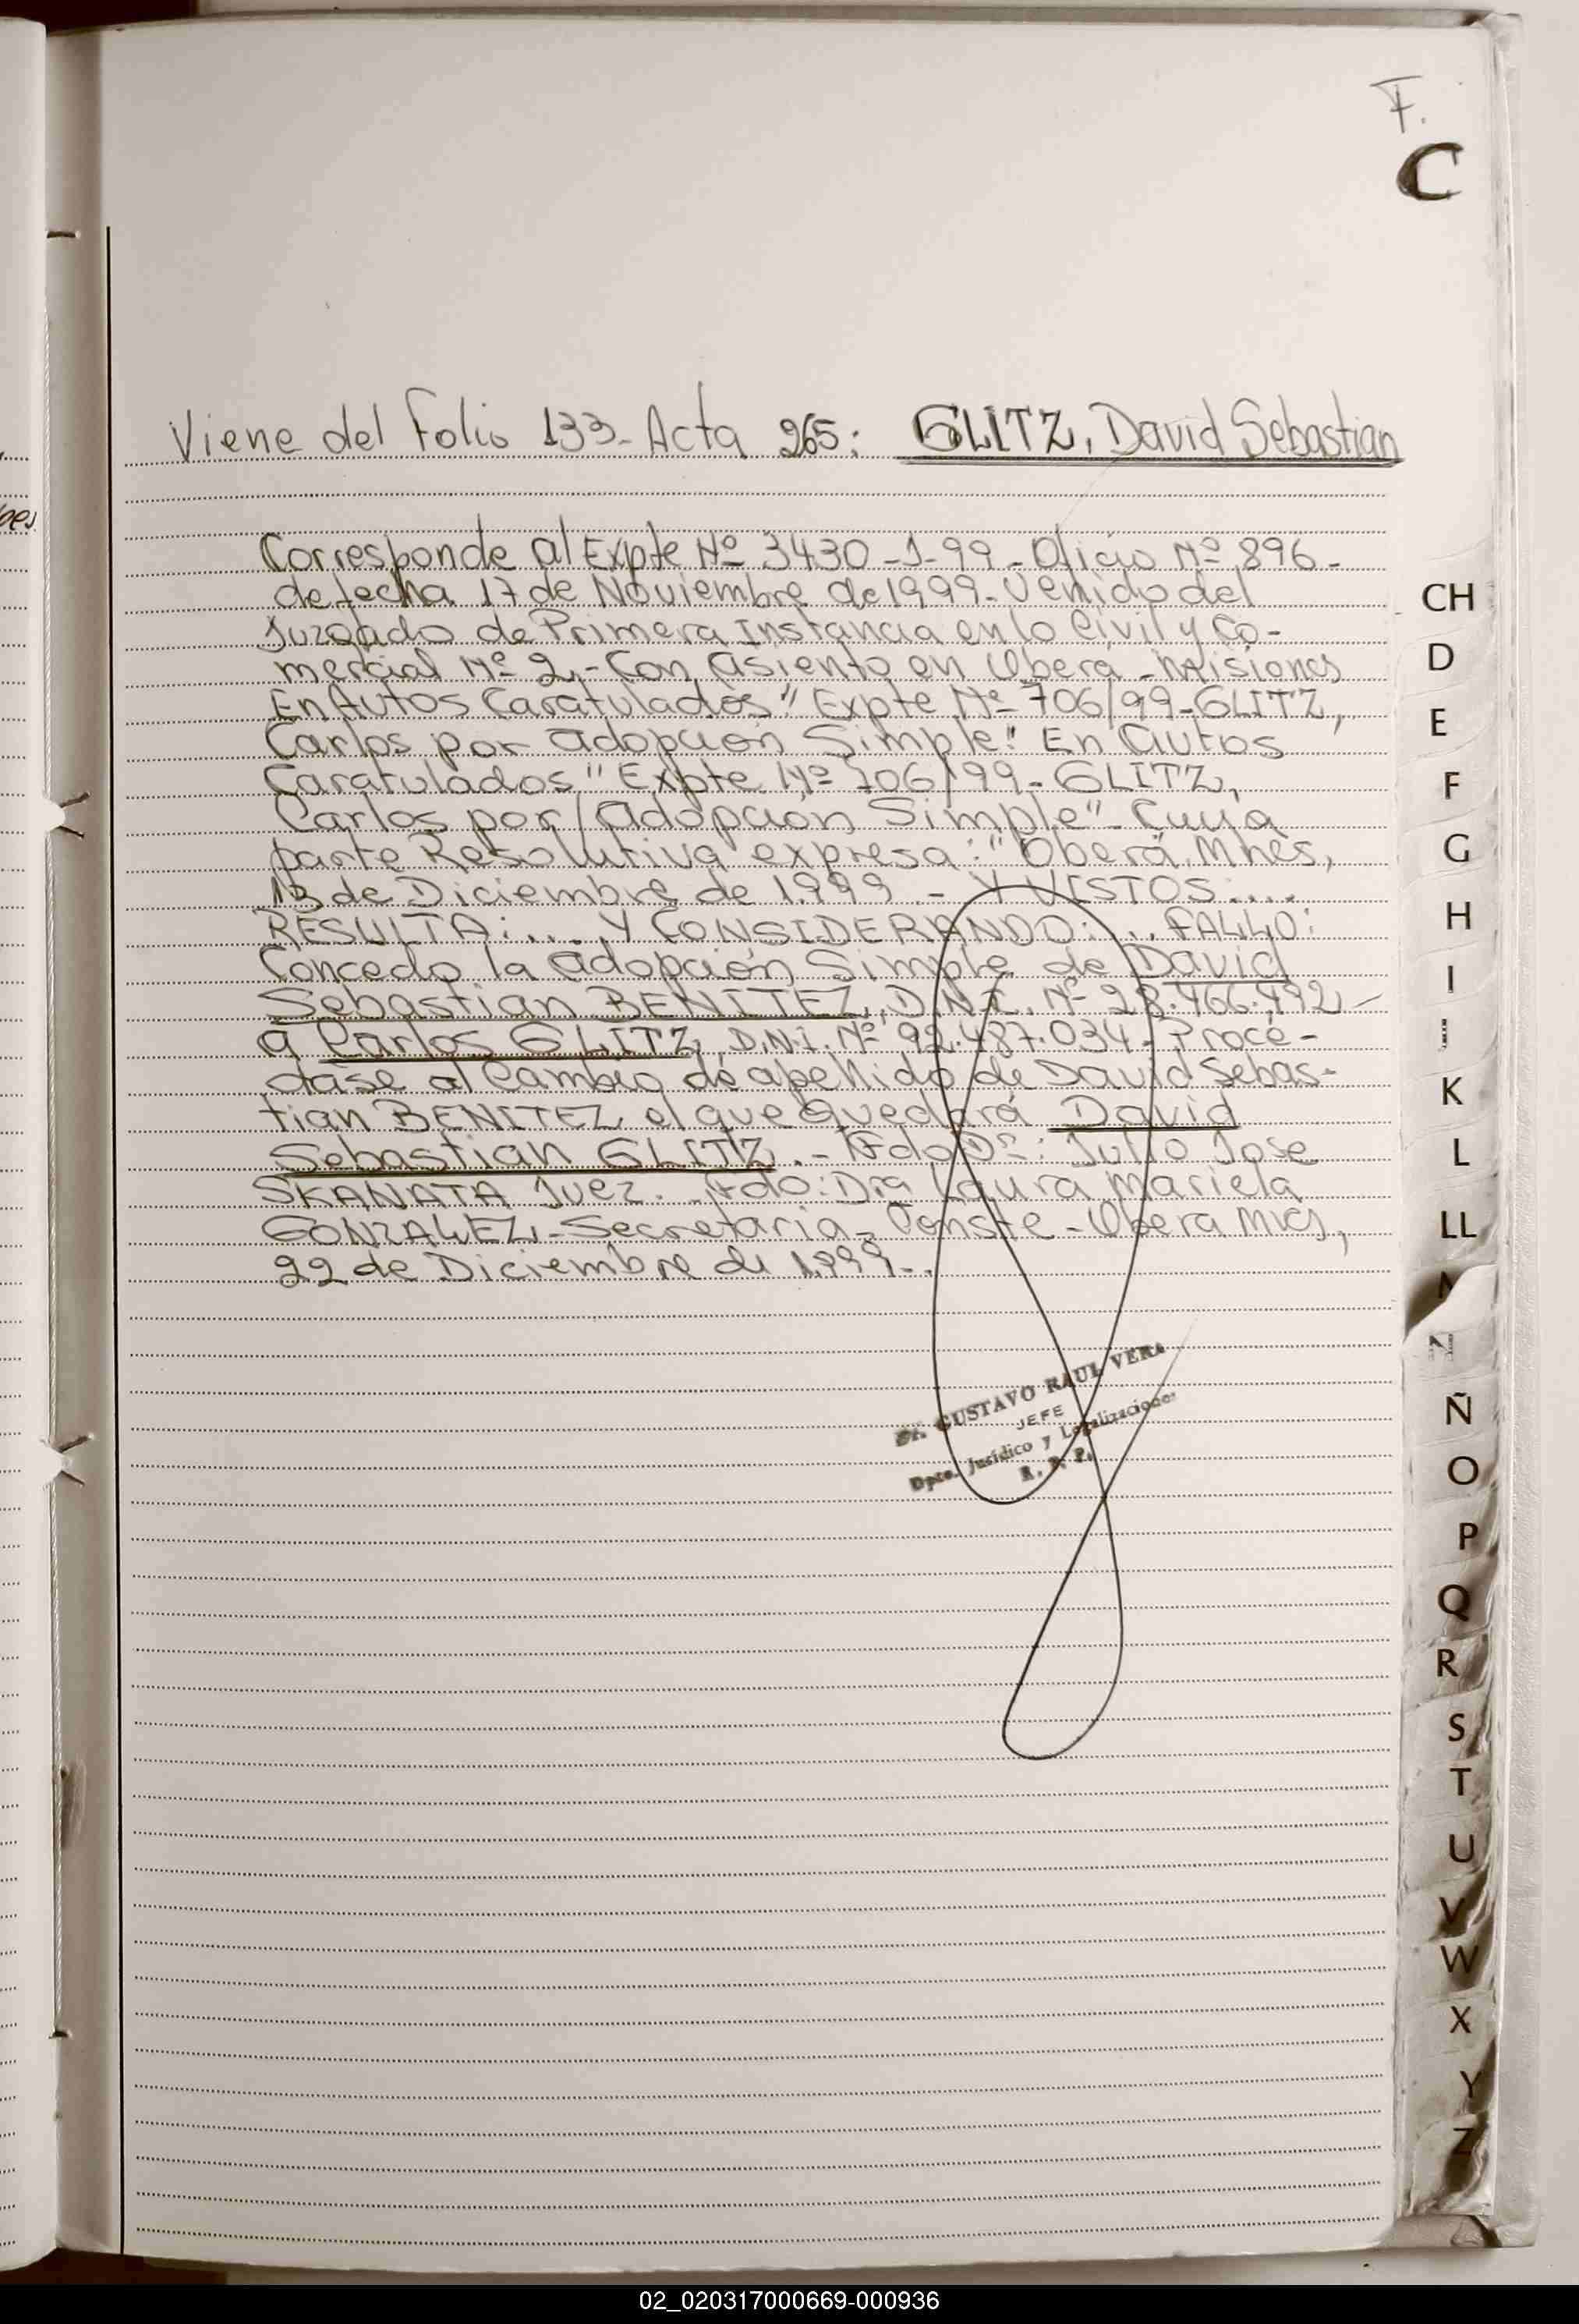 F.
C
Viene del Folio 133- Acta 265: GLITZ, David Sebastian
Corresponde al Expte Nº 3430-1-99- Oficio Nº 896-
de fecha 17 de Noviembre de 1999- Venido del
Juzgado de Primera Instancia en lo Civil y Co-
mercial Nº 2,- Con asiento en Oberá - Misiones
En Autos Caratulados "Expte Nº 706/99- GLITZ,
Carlos por adopción Simple." En Autos
Caratulados "Expte Nº 706/99- GLITZ,
Carlos por/Adopción Simple"- Cuya
parte Resolutiva expresa: "Oberá, Mnes,
13 de Diciembre de 1.999.- Y VISTOS:....
RESULTA:.... Y CONSIDERANDO:... FALLO:
Concedo la adopción Simple de David
Sebastian BENITEZ, D.N.I. Nº 28.466.492-
a Carlos GLITZ, D.N.I. Nº 92.487.034- Procé-
dase al Cambio de apellido de David Sebas-
tian BENITEZ el que quedará David
Sebastian GLITZ.- Fdo Dr: Julio Jose
SKANATA Juez.- Fdo: Dra Laura Mariela
GONZALEZ,- Secretaria- Conste- Obera Mnes,
22 de Diciembre de 1.999-.
Dr. GUSTAVO RAUL VERA
JEFE
Dpto. Jurídico y Legalizaciones
R. P. P.
CH
D
E
F
G
H
I
K
L
LL
N
Ñ
O
P
Q
R
S
T
U
V
W
X
Y
Z
02_020317000669-000936